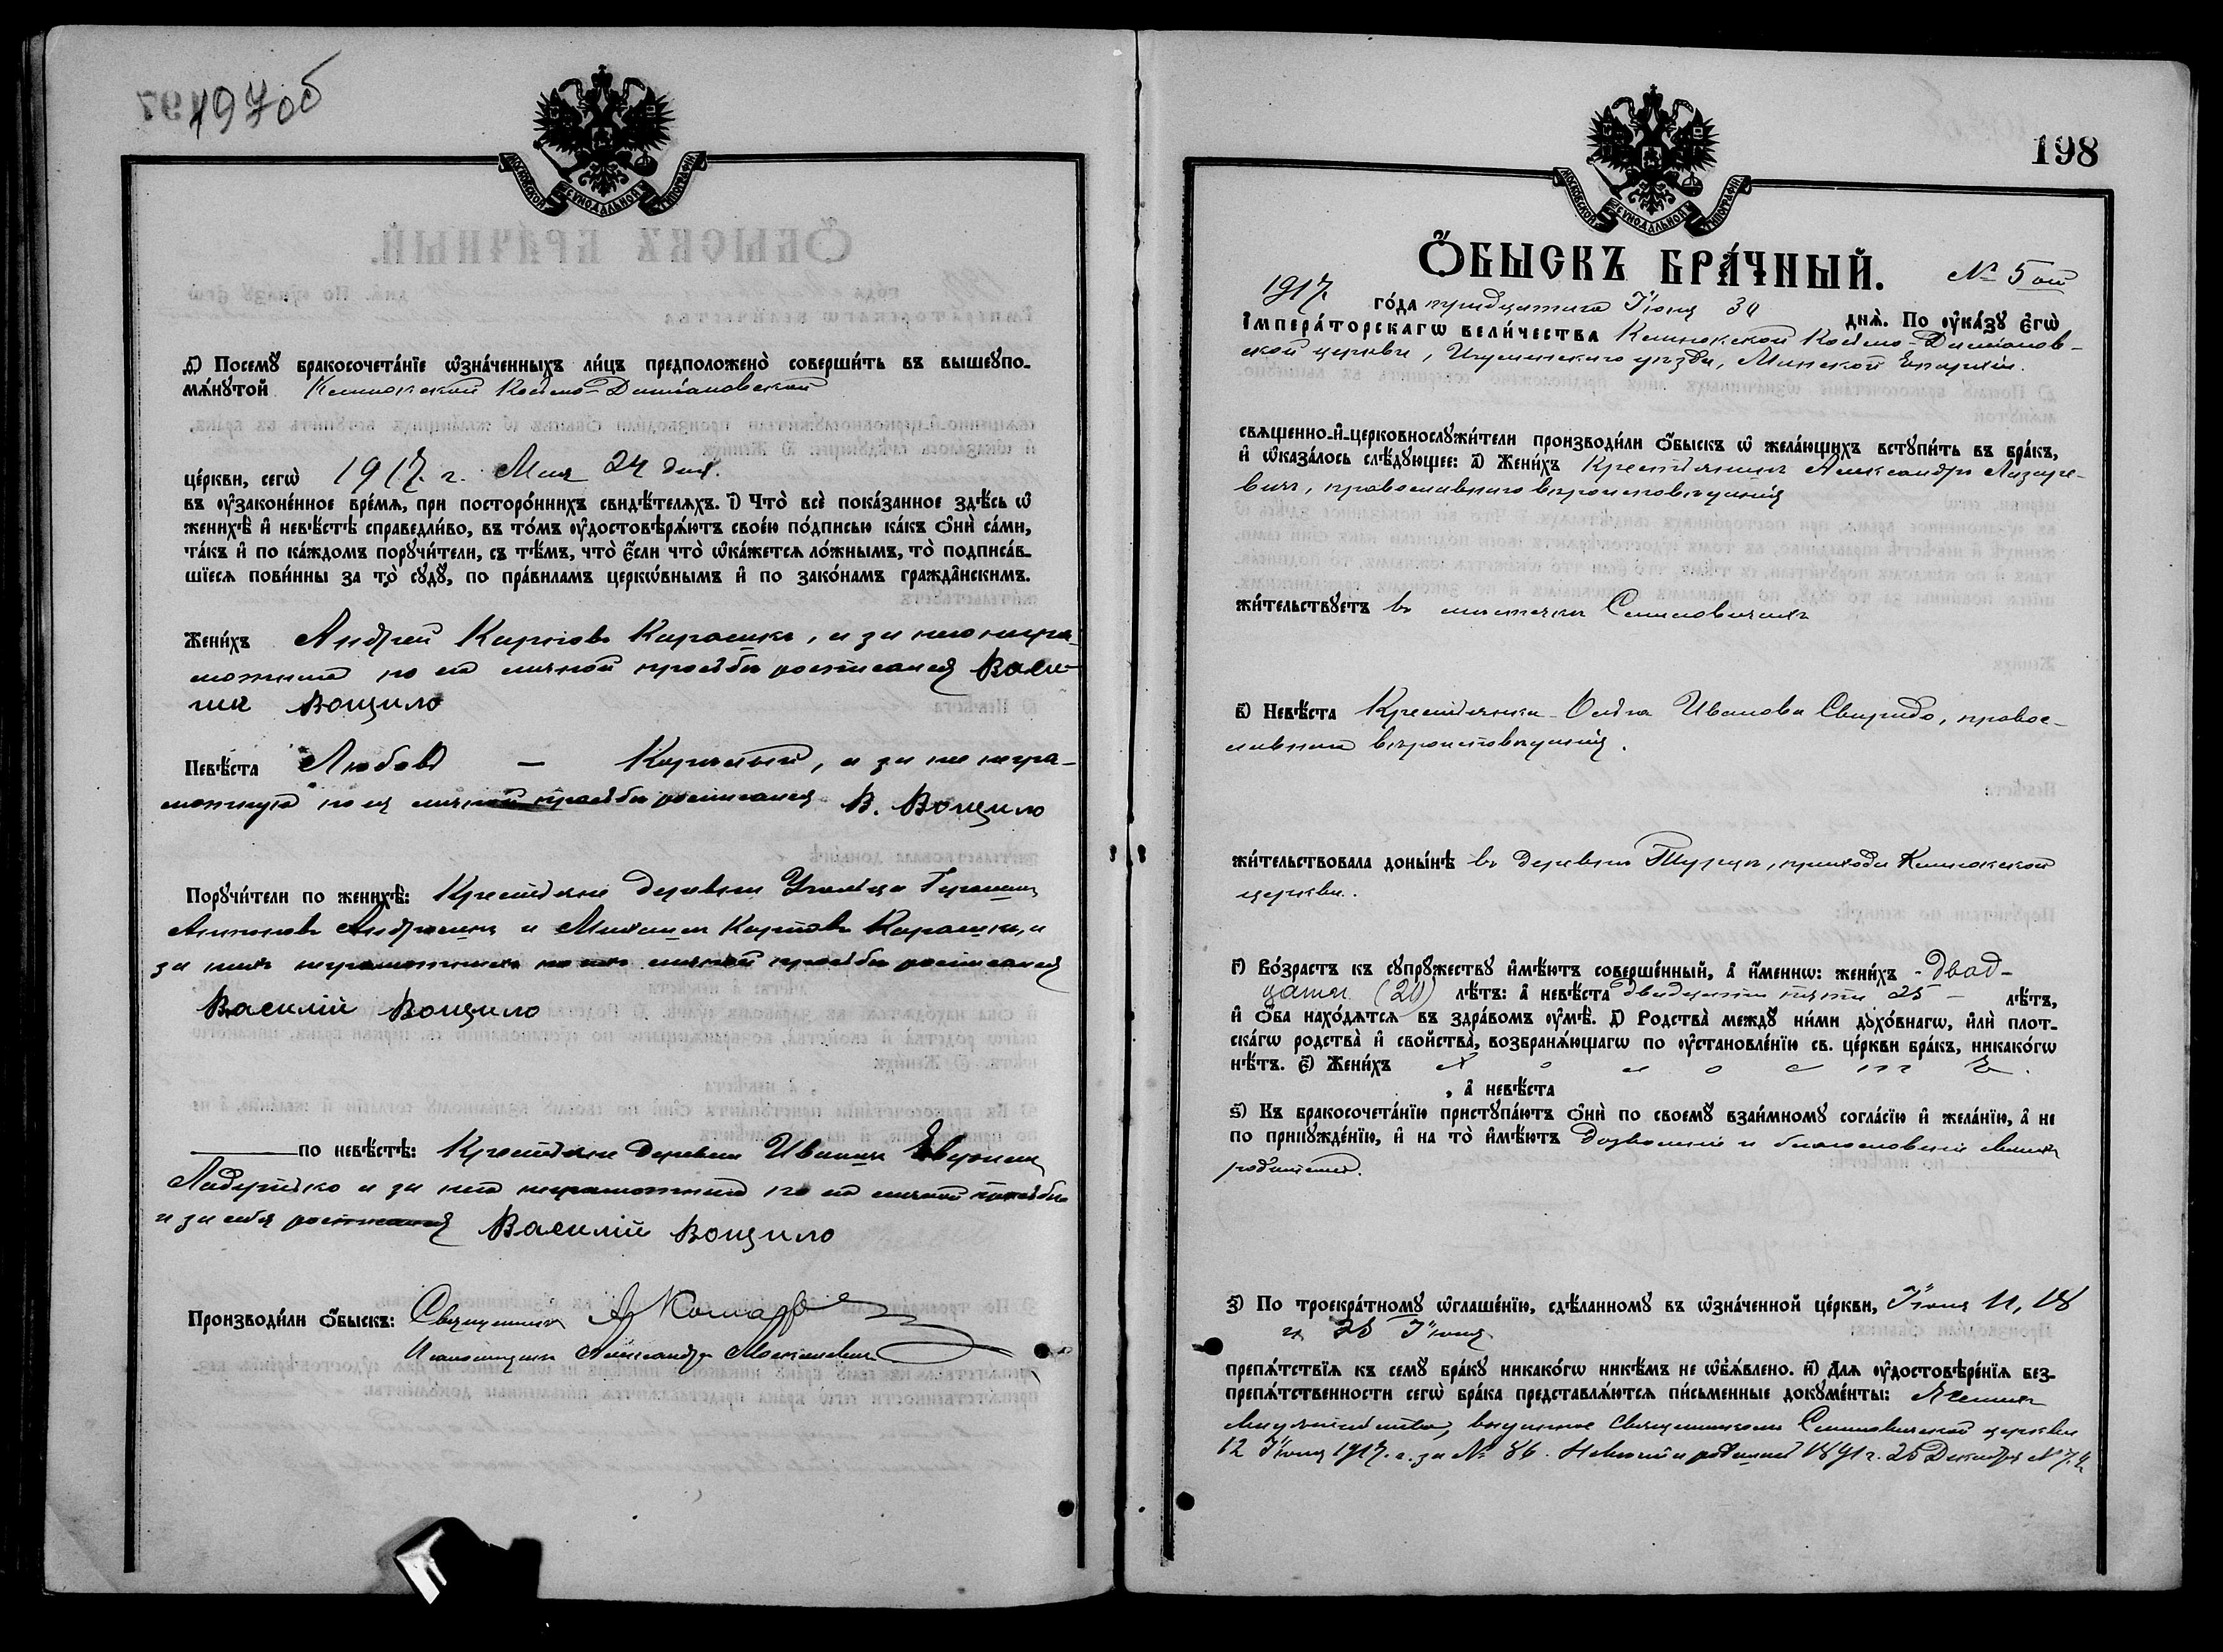 197об
МОСКОВСКОЙ СѴНОДАЛЬНОЙ ТИПОГРАФІИ
д҃) Посемꙋ̀ бракосочета́нїе ѡ҆зна́ченныхъ ли́цъ предположено̀ соверши́ть въ вышеꙋпо-
мѧ́нꙋтой Клинокской Космо-Даміановской
це́ркви, сегѡ̀ 1917. г. Мая 24 дня.
въ ᲂу҆законе́нное вре́мѧ, при посторо́ннихъ свидѣ́телѧхъ. і҃) Что̀ всѐ пока́занное здѣ́сь ѡ҆
женихѣ̀ и҆ невѣ́стѣ справедли́во, въ то́мъ ᲂу҆достовѣрѧ́ютъ свое́ю по́дписью ка́къ ѻ҆нѝ са́ми,
та́къ и҆ по ка́ждомъ порꙋчи́тели, съ тѣ́мъ, что̀ є҆́сли что̀ ѡ҆ка́жетсѧ ло́жнымъ, то̀ подписа́в-
шїесѧ пови́нны за то̀ сꙋдꙋ̀, по пра́виламъ церкѡ́внымъ и҆ по зако́намъ гражда̑нскимъ.
Жени́хъ Андрей Карповъ Карасикъ, а за него негра-
мотнаго по его личной просьбѣ росписался Васи-
лій Вощило
Невѣ́ста Любовь — , а за нее негра-
мотную по ея личной просьбѣ росписался В. Вощило
Порꙋчи́тели по женихѣ̀: Крестьяне деревни
и Михаилъ Карповъ Карасикъ, а
за нихъ неграмотныхъ по ихъ личной просьбѣ росписался
Василій Вощило
по невѣ́стѣ: Крестьяне деревни
и за него неграмотнаго по его личной просьбѣ
и за себя росписался Василій Вощило
Производи́ли ѻ҆́быскъ: Священникъ
Псаломщикъ Александръ
198
МОСКОВСКОЙ СѴНОДАЛЬНОЙ ТИПОГРАФІИ
Ѻ҆́БЫСКЪ БРА́ЧНЫЙ.
№ 5ый
1917. го́да тридцатаго Іюня 30 днѧ̀. По ᲂу҆ка́зꙋ є҆гѡ̀
І҆мпера́торскагѡ вели́чества Клинокской Космо-Даміанов-
ской церкви, Игуменскаго уѣзда, Минской Епархіи.
свѧще́нно-и҆-церковнослꙋжи́тели производи́ли ѻ҆́быскъ ѡ҆ жела́ющихъ встꙋпи́ть въ бра́къ,
и҆ ѡ҆каза́лось слѣ́дꙋющее: а҃) Жени́хъ Крестьянинъ Александръ Лазаре-
вичъ, православнаго вѣроисповѣданія
жи́тельствꙋетъ въ мѣстечкѣ Смиловичахъ
в҃) Невѣ́ста Крестьянка Ольга Иванова Свиридо, правос-
лавнаго вѣроисповѣданія.
жи́тельствовала доны́нѣ въ деревнѣ Турецъ, прихода Клинокской
церкви.
г҃) Во́зрастъ къ сꙋпрꙋ́жествꙋ и҆мѣ́ютъ соверше́нный, а҆ и҆́меннѡ: жени́хъ - двад-
цати (20) лѣ́тъ: а҆ невѣ́ста двадцати пяти 25 — лѣ́тъ,
и҆ ѻ҆́ба нахо́дѧтсѧ въ здра́вомъ ᲂу҆мѣ̀. д҃) Родства̀ междꙋ̀ ни́ми дꙋхо́внагѡ, и҆лѝ плот-
ска́гѡ родства̀ и҆ сво́йства̀, возбранѧ́ющагѡ по ᲂу҆становле́нїю св. це́ркви бра́къ, никако́гѡ
нѣ́тъ. є҃) Жени́хъ х о л о с т ъ.
, а҆ невѣ́ста
ѕ҃) Къ бракосочета́нїю пристꙋпа́ютъ ѻ҆нѝ по своемꙋ̀ взаи́мномꙋ согла́сїю и҆ жела́нїю, а҆ не
по принꙋжде́нїю, и҆ на то̀ и҆мѣ́ютъ дозволеніе и благословеніе своихъ
родителей.
з҃) По троекра́тномꙋ ѡ҆глаше́нїю, сдѣ́ланномꙋ въ ѡ҆зна́ченной це́ркви, Іюня 11, 18
и 25 Іюня
препѧ́тствїѧ къ семꙋ̀ бра́кꙋ никако́гѡ никѣ́мъ не ѡ҆б̾ѧ́влено. и҃) Длѧ ᲂу҆достовѣре́нїѧ без-
препѧ́тственности сегѡ̀ бра́ка представлѧ́ютсѧ пи́сьменные докꙋме́нты: Жениха
свидѣтельство, выданное священникомъ Смиловичской церкви
12 Іюня 1917. г. за № 86. Невѣста 1891 г. 25 Декабря №